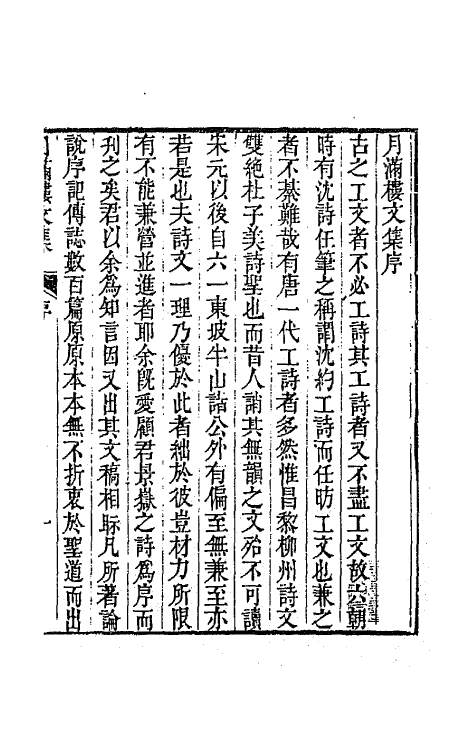 月滿樓文集序
古之工文者不必工詩其工詩者又不盡工文故六朝
時有沈詩任筆之稱謂沈約工詩而任昉工文也兼之
者不綦難哉有唐一代工詩者多然惟昌黎柳州詩文
雙絶杜子美詩聖也而昔人誚其無韻之文殆不可讀
宋元以後自六一東坡半山諸公外有偏至無兼至亦
若是也夫詩文一理乃優於此者絀於彼豈材力所限
有不能兼營並進者耶余旣愛顧君景嶽之詩爲序而
刋之矣君以余爲知言因又出其文稿相眎凡所著論
說序記傳誌數百篇原原本本無不折衷於聖道而出
月滿樓文集 序 一